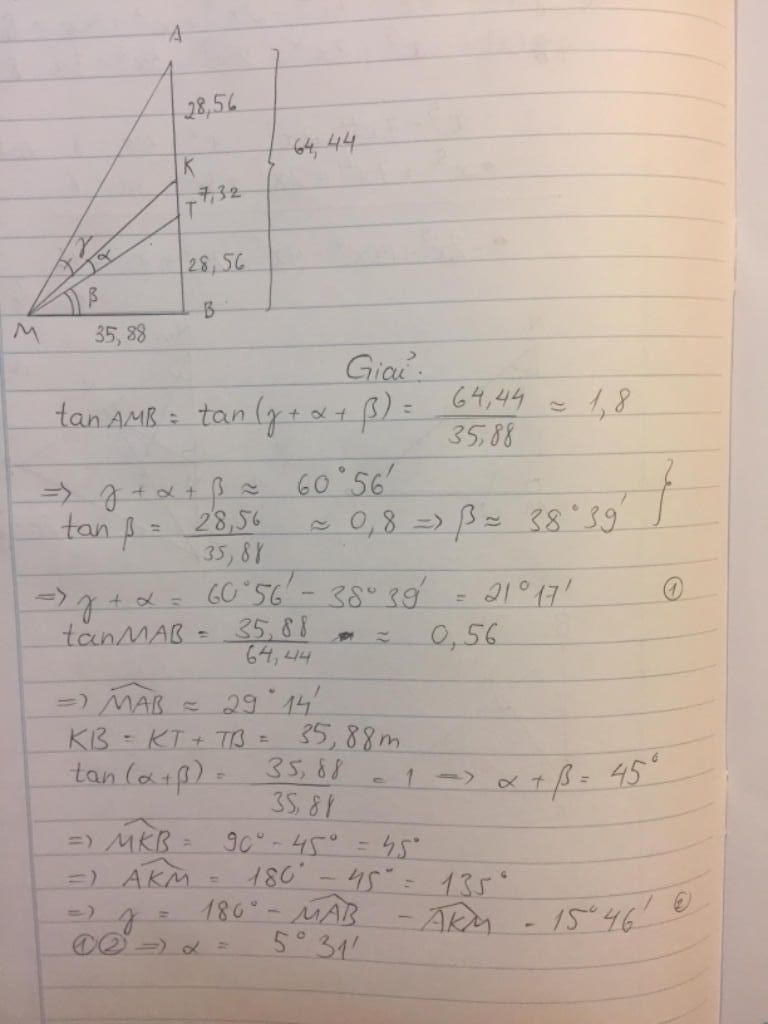 A
28,56
64,44
K
7,32
T
28,56
γ
α
β
B
M
35,88
Giải:
tan AMB = tan (γ + α + β) = 64,44 / 35,88 ≈ 1,8
=> γ + α + β ≈ 60°56' }
tan β = 28,56 / 35,88 ≈ 0,8 => β ≈ 38°39'
=> γ + α = 60°56' - 38°39' = 21°17' ①
tanMAB = 35,88 / 64,44 ≈ 0,56
=> \widehat{MAB} ≈ 29°14'
KB = KT + TB = 35,88m
tan (α+β) = 35,88 / 35,88 = 1 => α + β = 45°
=> \widehat{MKB} = 90° - 45° = 45°
=> \widehat{AKM} = 180° - 45° = 135°
=> γ = 180° - \widehat{MAB} - \widehat{AKM} = 15°46' ②
①② => α = 5°31'